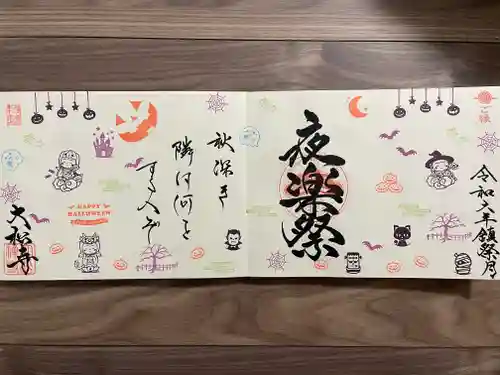 令和六年鎮祭月
夜楽祭
秋深き
隣は何を
する人ぞ
HAPPY
HALLOWEEN
大松寺